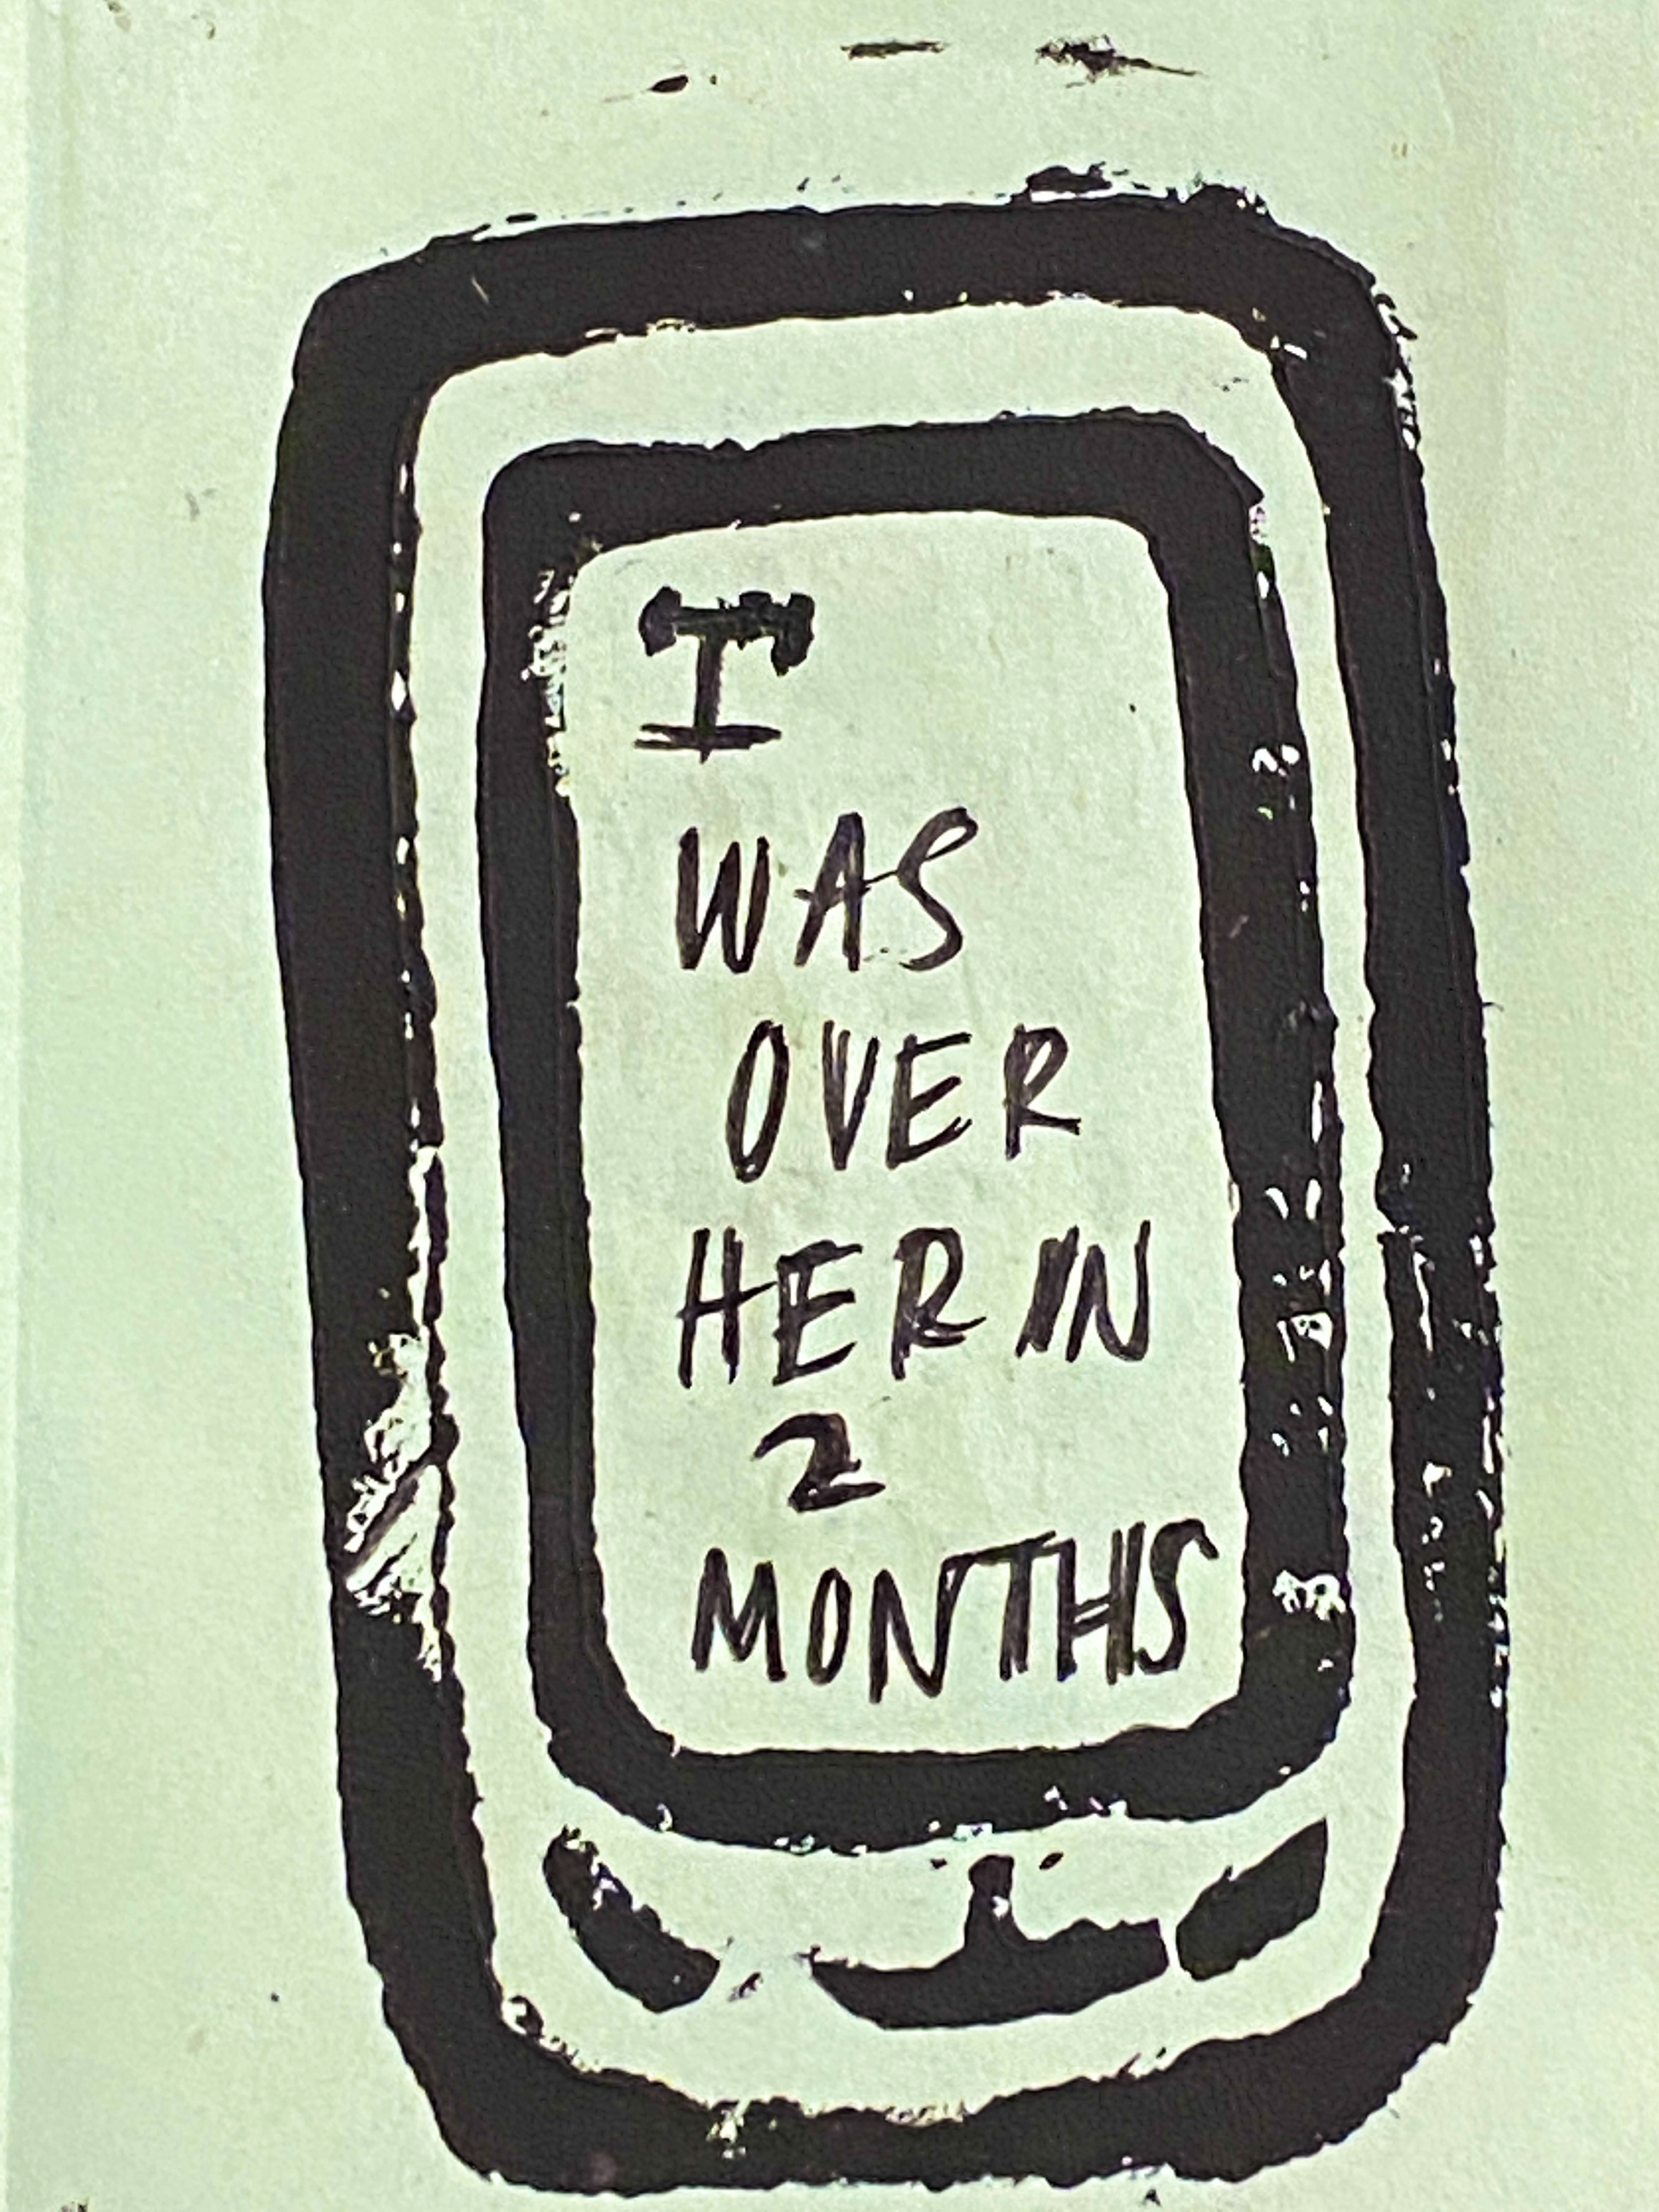 I
WAS
OVER
HER IN
2
MONTHS